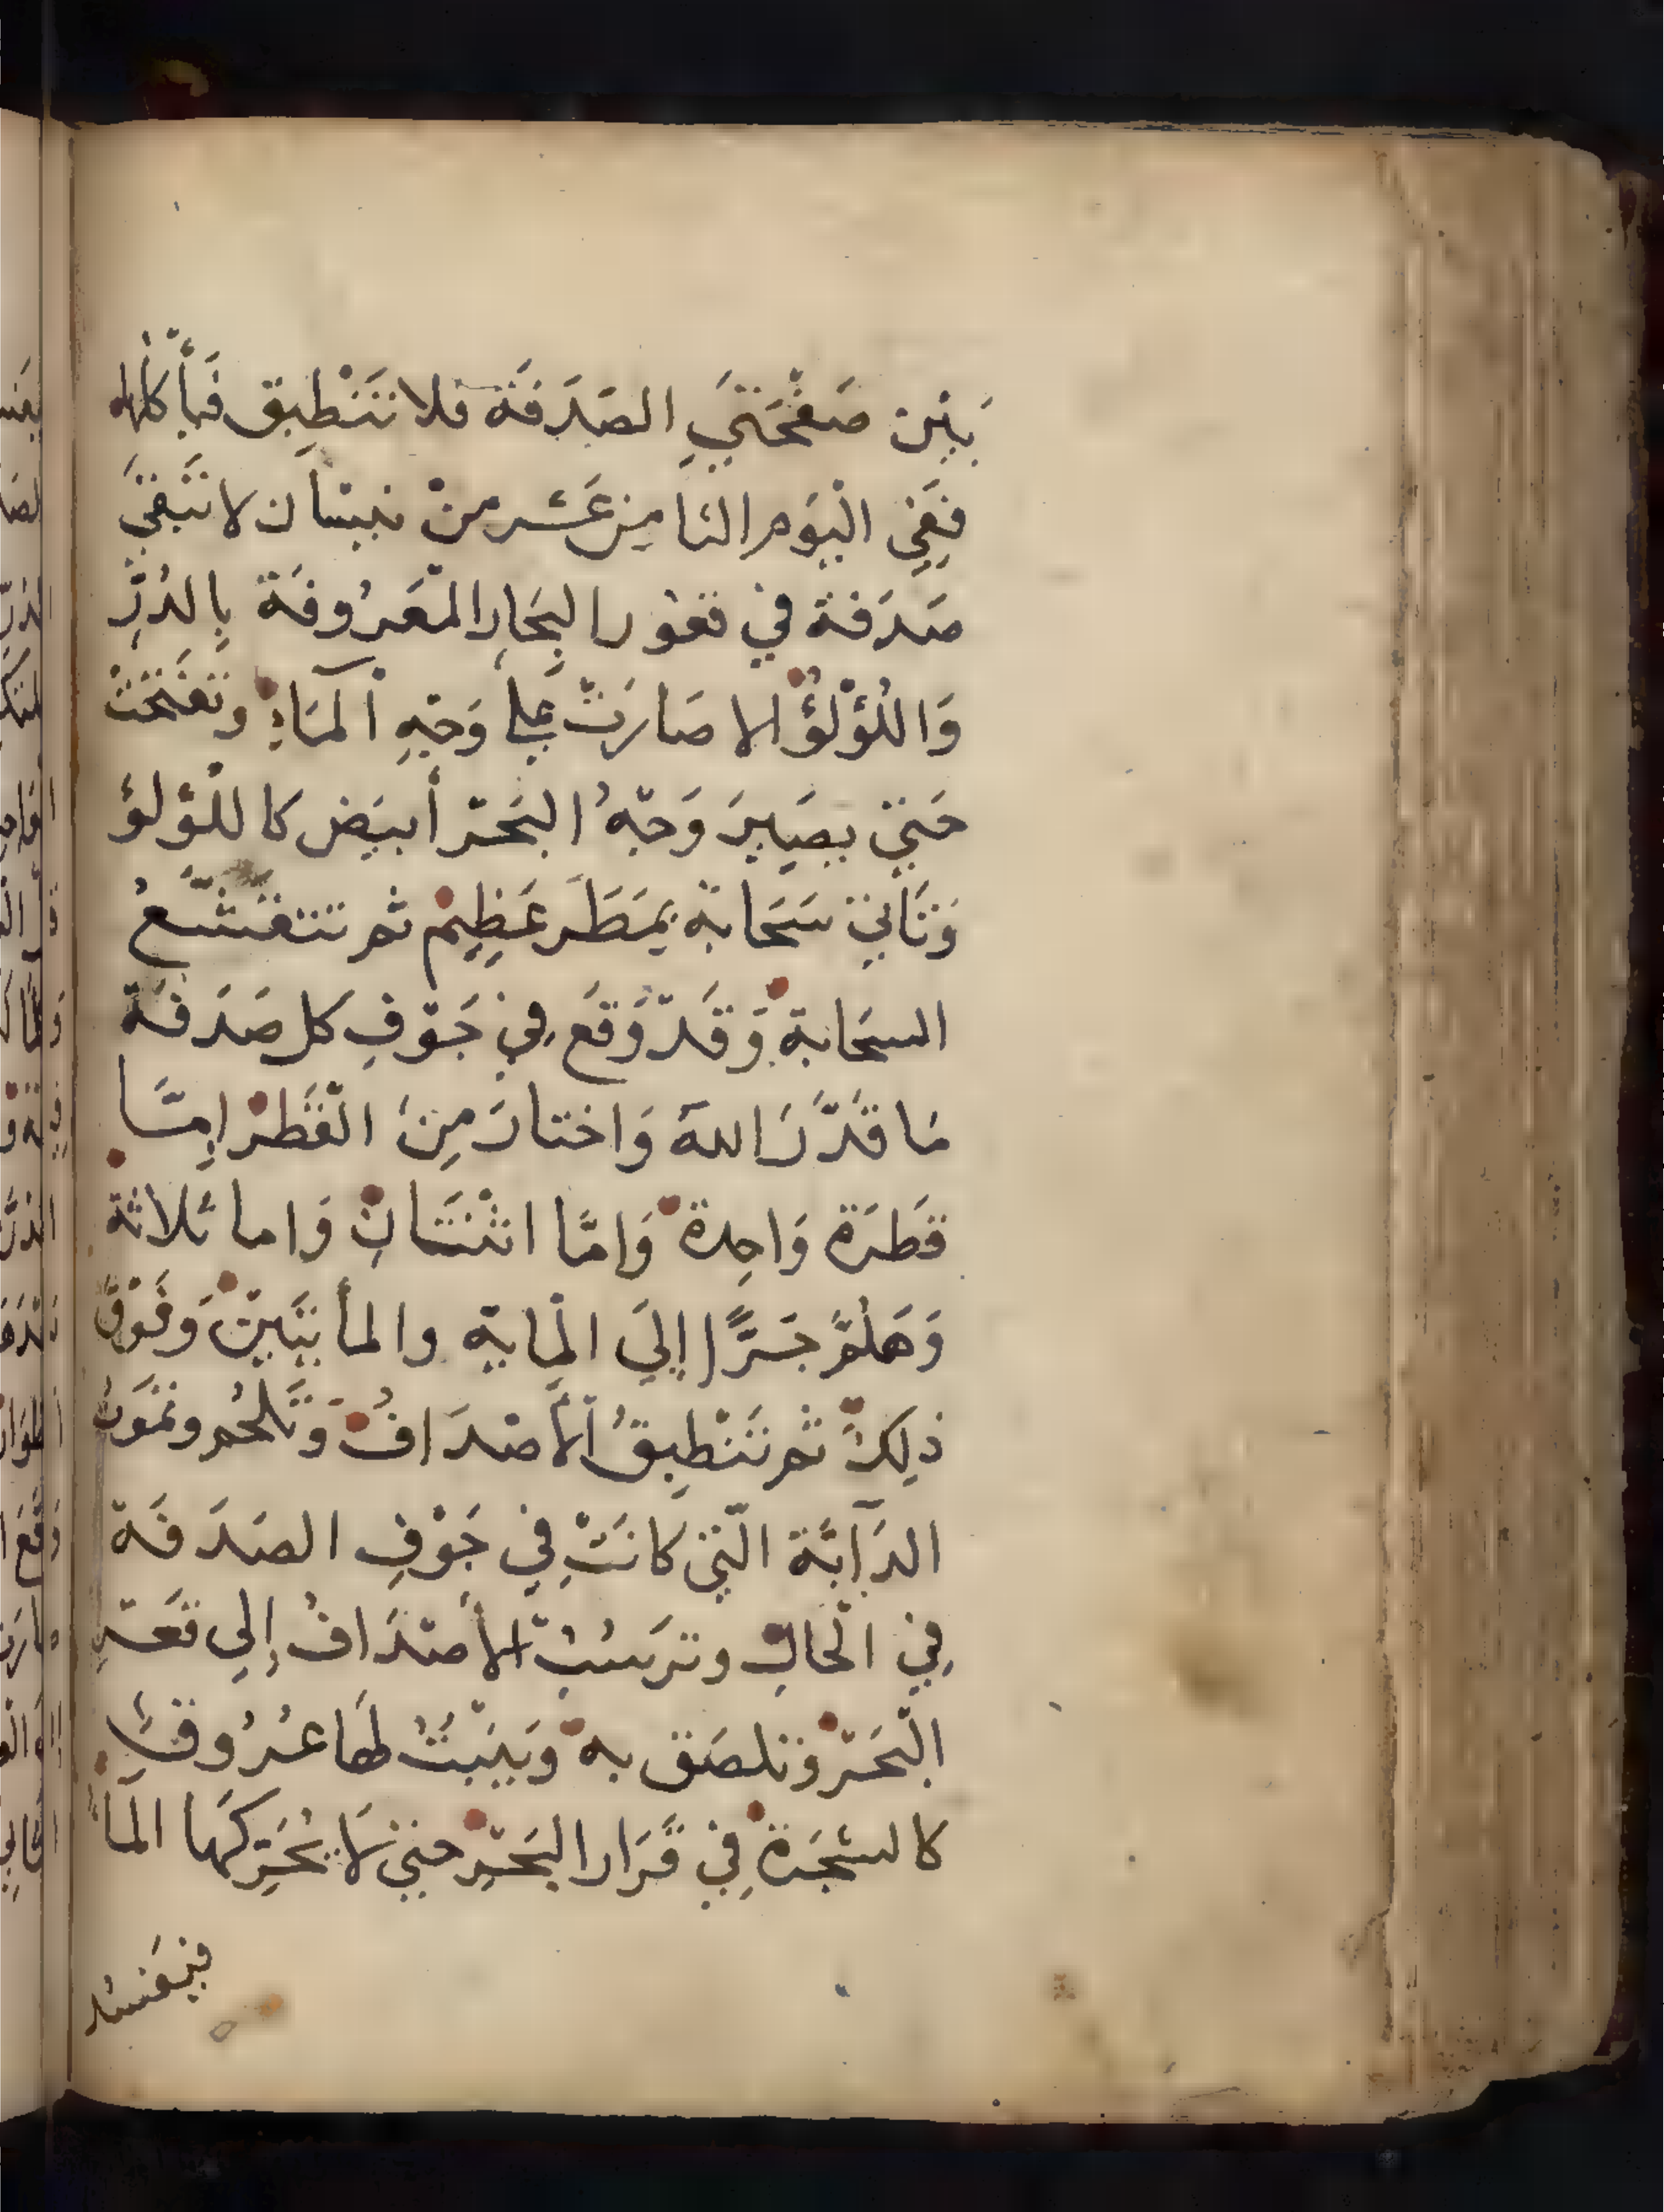 بَيْن صَفْحَتَيِ الصَدَفَة فلا تَنْطَبِق فَيأْكُلها
فَفِي الْيَوْم الثامِن عَشَر مِنْ نيسَان لا تَبْقَي
صَدَفة في قعُور البِحَار الْمَعْرُوفَة بِالدُرِّ
وَاللُؤْلُؤْ الا صَارَتْ عَلي وَجْهِ اْلمَآءِ وتفَتَّحَتْ
حَتي يصَيِيرَ وَجْهُ البَحْر أبيَض كاللُؤْلؤ
وَتَاتي سَحَابَة بمَطَر عَظِيمْ ثم تتقَشّعُ
السحَابةْ وَقَدْ وَقَع فِي جَوْفِ كل صَدَفَة
مَا قَدَّرَ اللهَ وَاختارَ مِنَ الْقَطرْ اِمَّا
قَطرَة وَاحِدة وَاِمَّا اثنتَانِ وَاما ثلاثة
وَهَلُمَّ جَرًّا إلَي الْمِاية والمأيتَينْ وَفَوْقَ
ذلِكَ ثم تَنْطبِقُ الْأصْدَافُ وَتَلحُم وتمَوتُ
الدَآبَّة الّتي كانَتْ فِي جَوْفِ الصَدَفَة
فِي الْحَالِ وترسُبُ الأصْدَافُ إلي قَعْرِ
الْبَحْر وَتلصَق بهْ وَيَنْبتُ لهَا عُرُوقٌ
كالشجَرَةْ فِي قَرَار البَحْرِ حتي لَا يُحَرِّكهَا الْمَاءُ
فيَفسُد